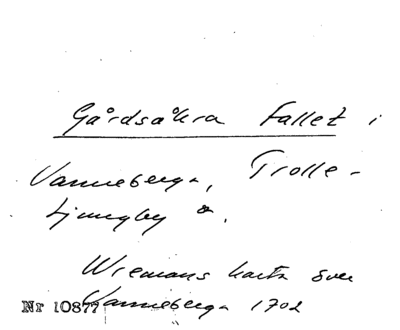 Gårdsåkra Fallet i
Vanneberga, Trolle-
Ljungby s.
Wiemans karta över
Vanneberga 1702
Nr 10877